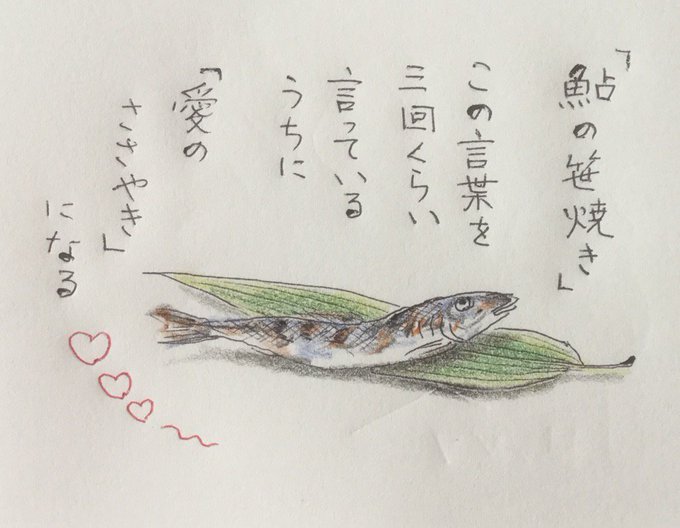 「鮎の笹焼き」
この言葉を
三回くらい
言っている
うちに
「愛の
ささやき」
になる